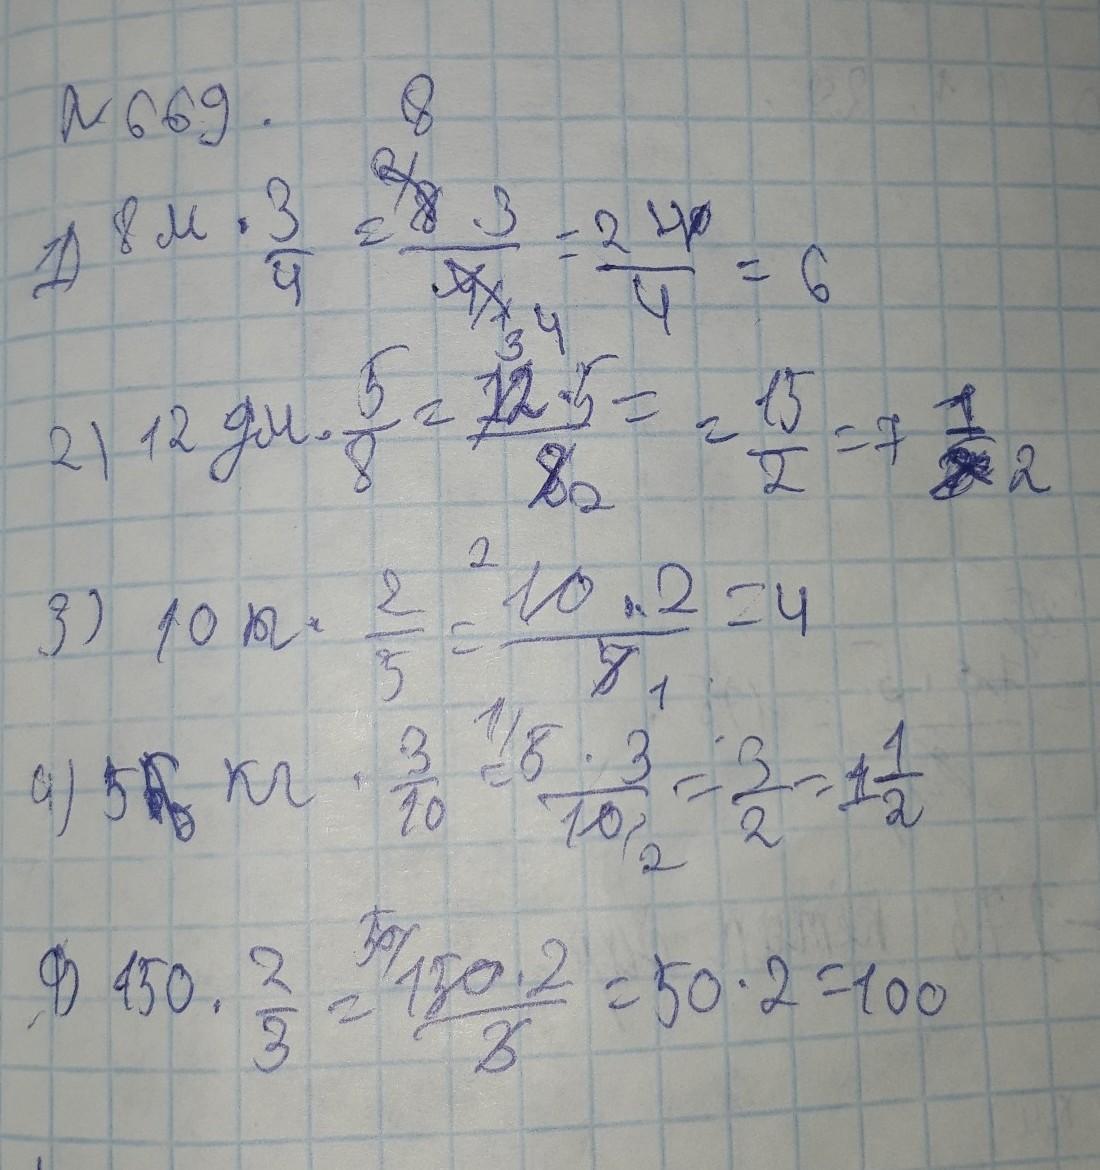 №669.
1) 8 м · 3/4 = 8 · 3/4 = 24/4 = 6
2) 12 дм · 5/8 = 12 · 5/8 = = 15/2 = 7 1/2
3) 10 кг · 2/5 = 10 · 2/5 = 4
4) 5 кг · 3/10 = 5 · 3/10 = 3/2 = 1 1/2
150 · 2/3 = 150 · 2/3 = 50 · 2 = 100